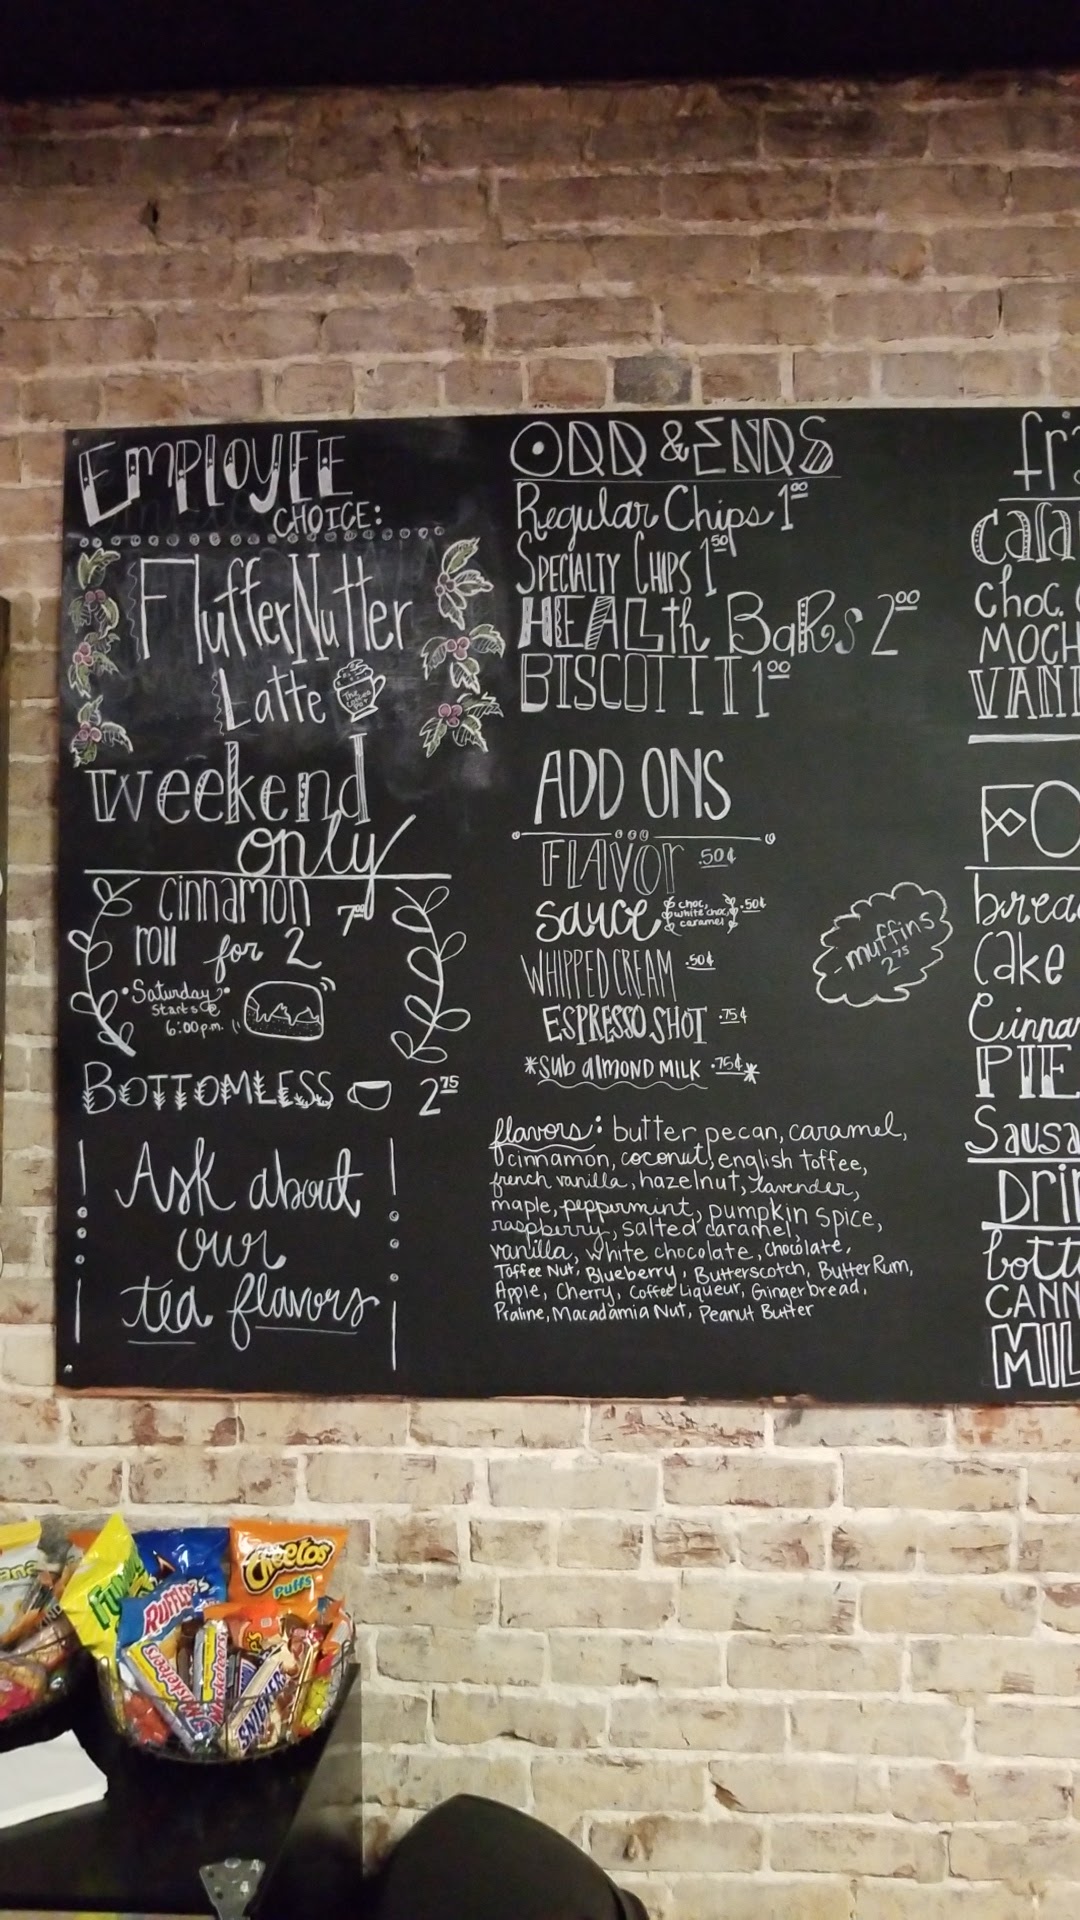 EMPLOYEE
CHOICE:
FlufferNutter
Latte
weekend
only
cinnamon 7⁰⁰
roll for 2
•Saturday•
Starts @
6:00 p.m.
BOTTOMLESS 2⁷⁵
Ask about
our
tea flavors
ODD & ENDS
Regular Chips 1⁰⁰
SPECIALTY CHIPS 1⁵⁰
HEALth BaRs 2⁰⁰
BISCOTTI 1⁰⁰
ADD ONS
FLAVOr .50¢
sauce choc, white choc, caramel .50¢
WHIPPED CREAM .50¢
ESPRESSO SHOT .75¢
*Sub almond MILK .75¢*
muffins
2⁷⁵
flavors: butter pecan, caramel,
cinnamon, coconut, english toffee,
french vanilla, hazelnut, lavender,
maple, peppermint, pumpkin spice,
raspberry, salted caramel,
vanilla, white chocolate, chocolate,
Toffee Nut, Blueberry, Butterscotch, Butter Rum,
Apple, Cherry, Coffee Liqueur, Gingerbread,
Praline, Macadamia Nut, Peanut Butter
fra
cara
choc.
MOCH
VANI
FO
brea
Cake
Cinna
PIE
Sausa
Drin
bott
CANN
MIL
Cheetos
Puffs
Funyuns
Ruffles
3 Musketeers
Musketeers
SNICKERS